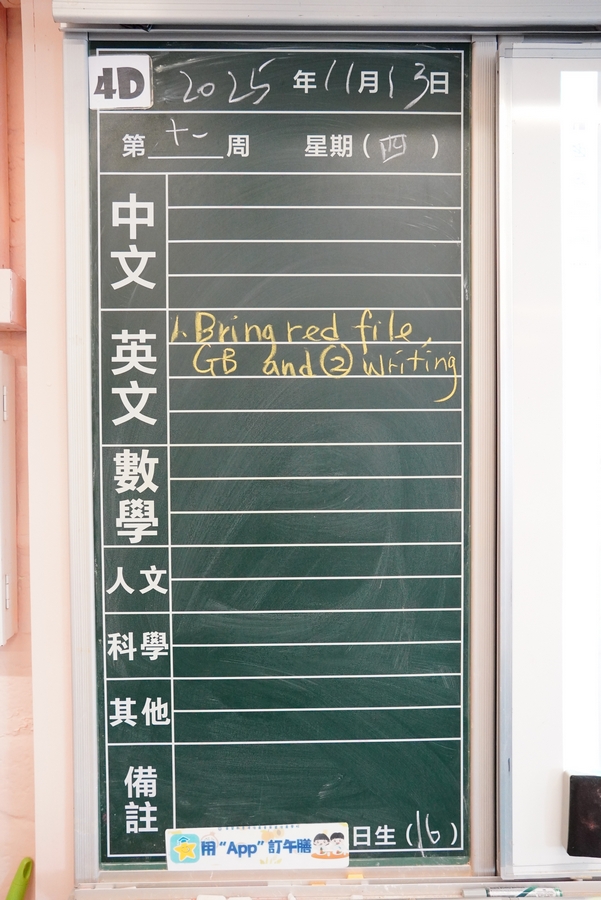 4D 2025 年 11 月 13 日
第 十一 周 星期 ( 四 )
中文
英文
1. Bring red file,
GB and ② writing
數學
人文
科學
其他
備註
用 "App" 訂午膳
日生 ( 16 )